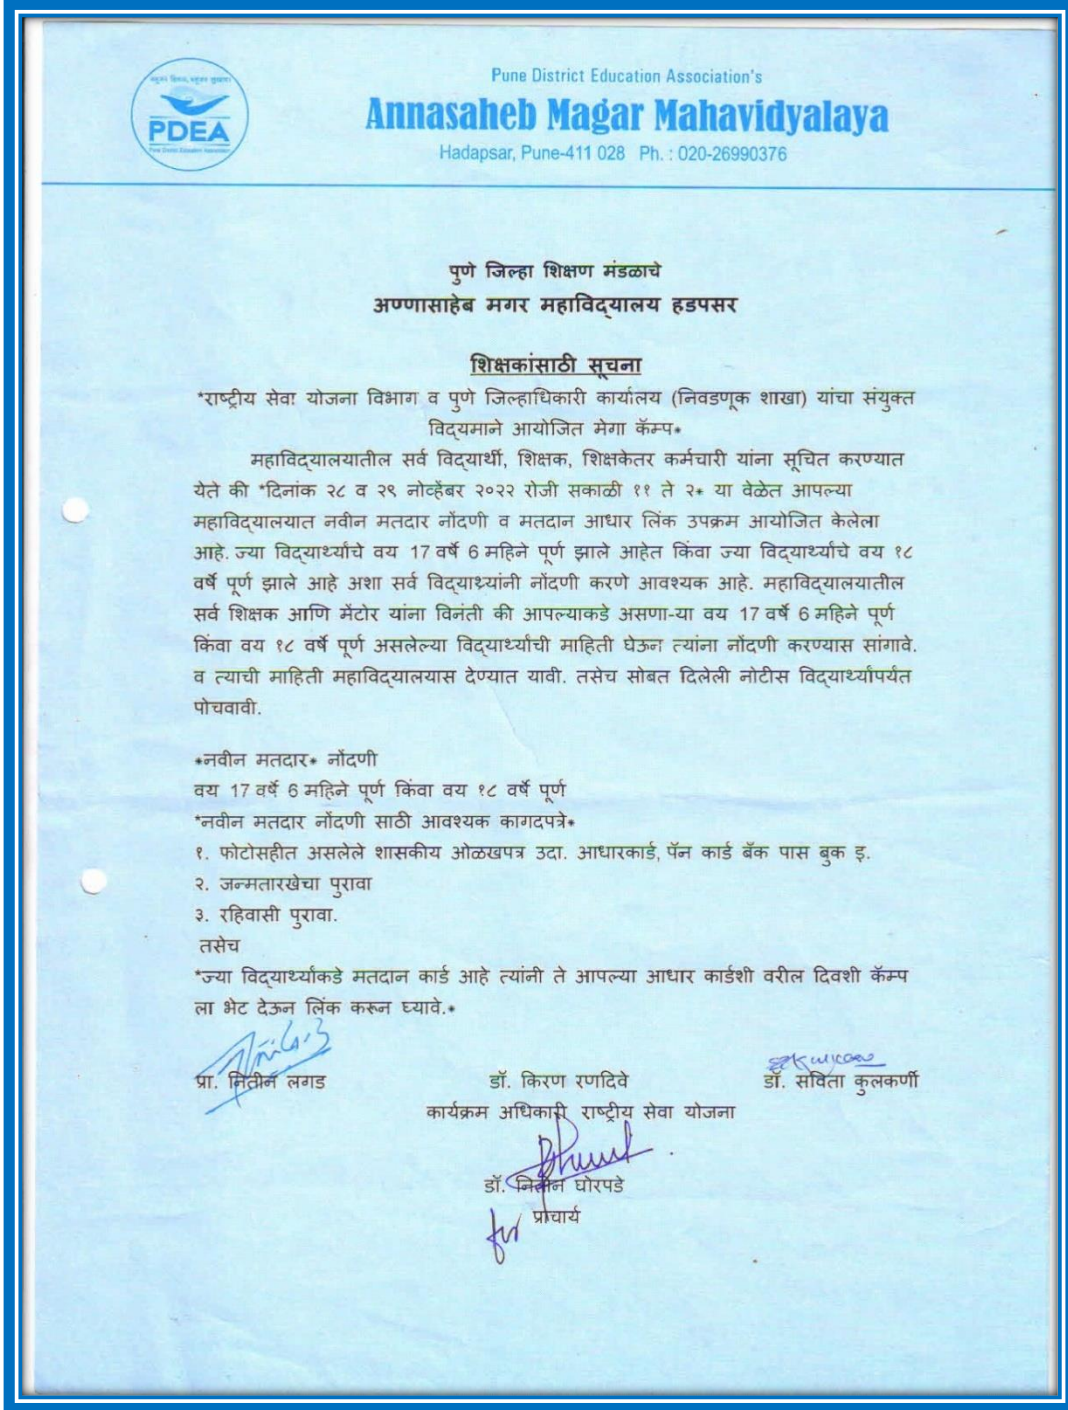 PDEA
Pune District Education Association's
Annasaheb Magar Mahavidyalaya
Hadapsar, Pune-411 028 Ph. : 020-26990376
पुणे जिल्हा शिक्षण मंडळाचे
अण्णासाहेब मगर महाविद्यालय हडपसर
शिक्षकांसाठी सूचना
*राष्ट्रीय सेवा योजना विभाग व पुणे जिल्हाधिकारी कार्यालय (निवडणूक शाखा) यांचा संयुक्त
विद्यमाने आयोजित मेगा कॅम्प*
महाविद्यालयातील सर्व विद्यार्थी, शिक्षक, शिक्षकेतर कर्मचारी यांना सूचित करण्यात
येते की *दिनांक २८ व २९ नोव्हेंबर २०२२ रोजी सकाळी ११ ते २* या वेळेत आपल्या
महाविद्यालयात नवीन मतदार नोंदणी व मतदान आधार लिंक उपक्रम आयोजित केलेला
आहे. ज्या विद्यार्थ्यांचे वय 17 वर्षे 6 महिने पूर्ण झाले आहेत किंवा ज्या विद्यार्थ्यांचे वय १८
वर्षे पूर्ण झाले आहे अशा सर्व विद्यार्थ्यांनी नोंदणी करणे आवश्यक आहे. महाविद्यालयातील
सर्व शिक्षक आणि मेंटोर यांना विनंती की आपल्याकडे असणा-या वय 17 वर्षे 6 महिने पूर्ण
किंवा वय १८ वर्षे पूर्ण असलेल्या विद्यार्थ्यांची माहिती घेऊन त्यांना नोंदणी करण्यास सांगावे.
व त्याची माहिती महाविद्यालयास देण्यात यावी. तसेच सोबत दिलेली नोटीस विद्यार्थ्यांपर्यंत
पोचवावी.
*नवीन मतदार* नोंदणी
वय 17 वर्षे 6 महिने पूर्ण किंवा वय १८ वर्षे पूर्ण
*नवीन मतदार नोंदणी साठी आवश्यक कागदपत्रे*
१. फोटोसहीत असलेले शासकीय ओळखपत्र उदा. आधारकार्ड, पॅन कार्ड बॅक पास बुक इ.
२. जन्मतारखेचा पुरावा
३. रहिवासी पुरावा.
तसेच
*ज्या विद्यार्थ्यांकडे मतदान कार्ड आहे त्यांनी ते आपल्या आधार कार्डशी वरील दिवशी कॅम्प
ला भेट देऊन लिंक करून घ्यावे.*
प्रा. नितीन लगड डॉ. किरण रणदिवे डॉ. सविता कुलकर्णी
कार्यक्रम अधिकारी राष्ट्रीय सेवा योजना
डॉ. नितीन घोरपडे
for प्राचार्य